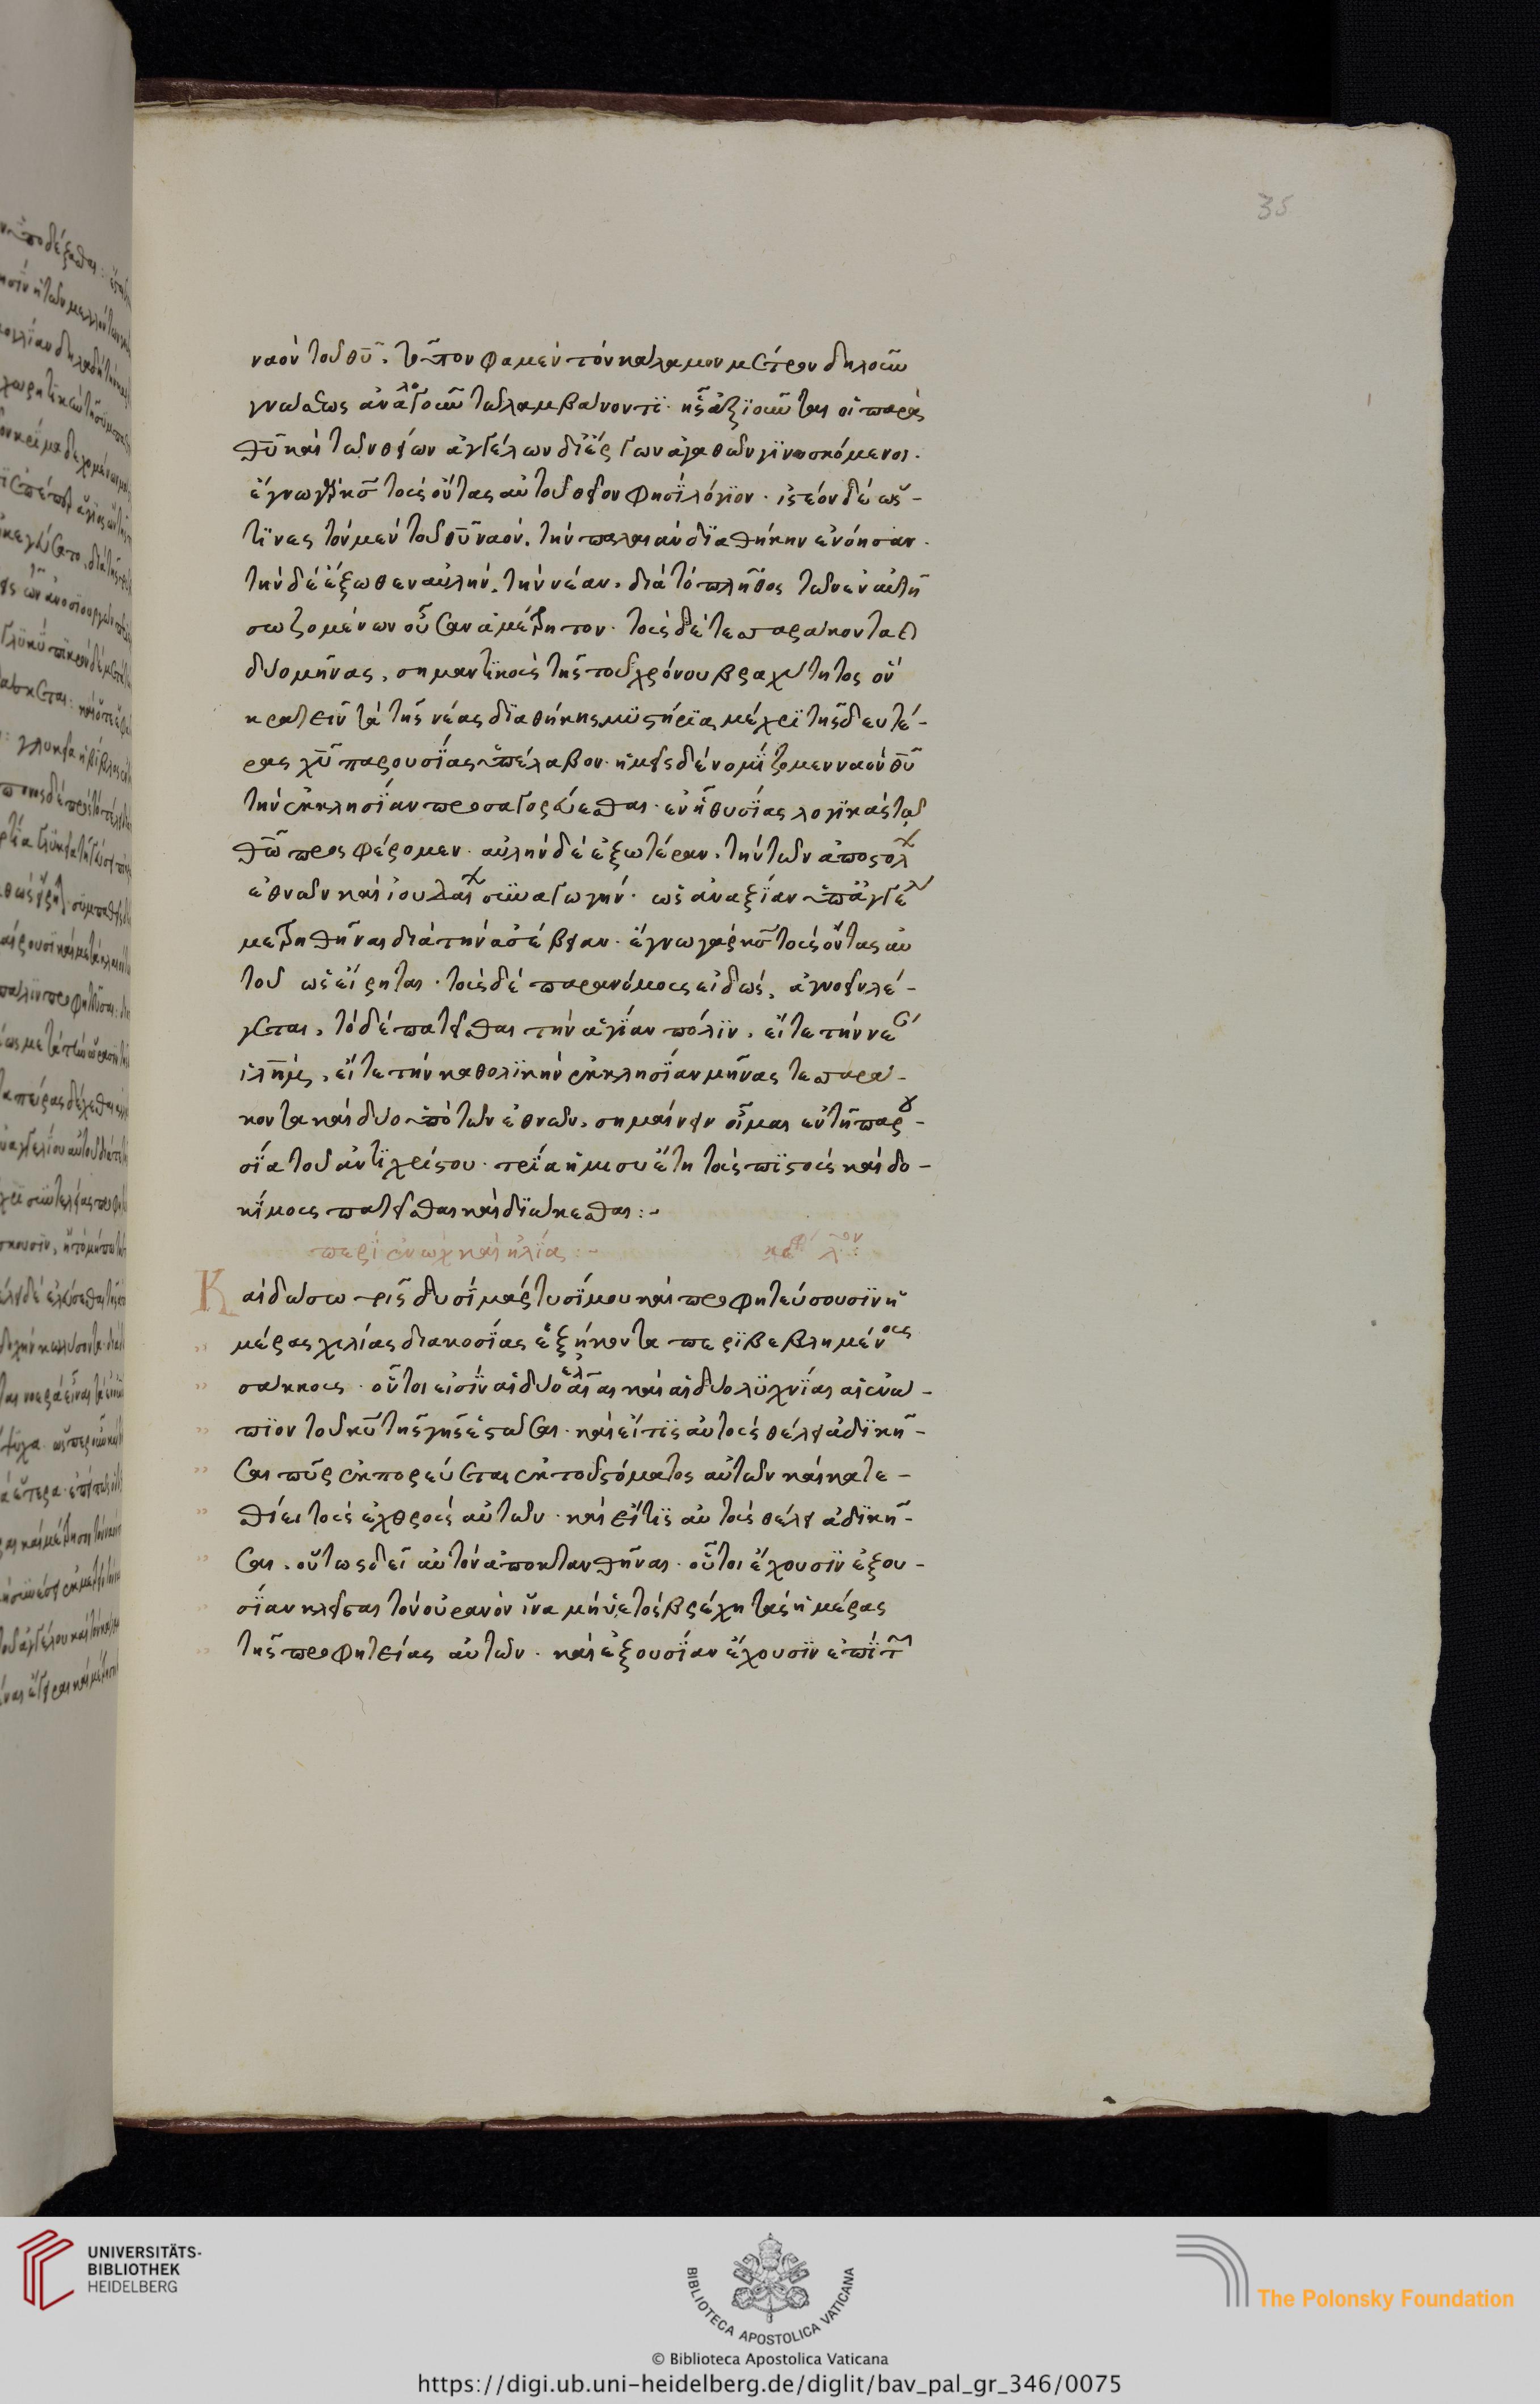 35
ναὸν τοῦ θῡ. τοῦτον φαμὲν τὸν κάλαμον μέτρον δηλοῦν
γνώσεως ἀνάλογον τῷ λαμβάνοντι. ἧς ἀξιοῦνται οἱ παρὰ
θῡ καὶ τῶν θείων ἀγγέλων δι' ἔργων ἀγαθῶν γινωσκόμενοι.
ἔγνω γὰρ κς̄ τοὺς ὄντας αὐτοῦ θεῖον φησὶ λόγιον. ἰστέον δὲ ὥς-
τινες τὸν μὲν τοῦ θῡ ναὸν. τὴν παλαιὰν διαθήκην ἐνόησαν.
τὴν δὲ ἔξωθεν αὐλὴν. τὴν νέαν. διὰ τὸ πλῆθος τῶν ἐν αὐτῇ
σωζομένων οὖσαν ἀμέτρητον. τοὺς δὲ τεσσαράκοντα
δύο μῆνας, σημαντικοὺς τῆς τοῦ χρόνου βραχύτητος ὃν
κρατεῖν τὰ τῆς νέας διαθήκης μυστήρια μέχρι τῆς δευτέ-
ρας χῡ παρουσίας ὑπέλαβον. ἡμεῖς δὲ νομίζομεν ναὸν θῡ
τὴν ἐκκλησίαν προσαγορεύεσθαι. ἐν ᾗ θυσίας λογικὰς τῷ
θῷ προσφέρομεν. αὐλὴν δὲ ἐξωτέραν. τὴν τῶν ἀπόστολ
ἐθνῶν καὶ ἰουδαί συναγωγήν. ὡς ἀναξίαν ὑπ' ἀγγέλ
μετρηθῆναι διὰ τὴν ἀσέβειαν. ἔγνω γὰρ κς̄ τοὺς ὄντας αὐ
τοῦ ὡς εἴρηται. τοὺς δὲ παρανόμους εἰδὼς, ἀγνοεῖν λέ-
γεται. τὸ δὲ πατεῖσθαι τὴν ἁγίαν πόλιν. εἴτε τὴν νέ
ιλημ. εἴτε τὴν καθολικὴν ἐκκλησίαν μῆνας τεσσαρά-
κοντα καὶ δύο ὑπὸ τῶν ἐθνῶν. σημαίνειν οἶμαι ἐν τῇ παρου-
σία τοῦ ἀντιχρίστου. τρία ἥμισυ ἔτη τοὺς πιστοὺς καὶ δο-
κίμους πατεῖσθαι καὶ διώκεσθαι:-
περὶ ἐνὼχ καὶ ἠλίας:-   κεφ λον:
Καὶ δώσω τρις δυσὶ μάρτυσί μου καὶ προφητεύσουσιν ἡ
μέρας χιλίας διακοσίας ἑξήκοντα περιβεβλημένους
σάκκους. οὗτοι εἰσὶν αἱ δύο ἐλαῖαι καὶ αἱ δύο λυχνίαι αἱ ἐνώ-
πιον τοῦ κῡ τῆς γῆς ἑστῶσαι. καὶ εἴ τις αὐτοὺς θέλει ἀδικῆ-
σαι πῦρ ἐκπορεύεται ἐκ τοῦ στόματος αὐτῶν καὶ κατε-
σθίει τοὺς ἐχθροὺς αὐτῶν. καὶ εἴ τις αὐτοὺς θέλει ἀδικῆ-
σαι. οὕτως δεῖ αὐτὸν ἀποκτανθῆναι. οὗτοι ἔχουσιν ἐξου-
σίαν κλεῖσαι τὸν οὐρανὸν ἵνα μὴ ὑετὸς βρέχῃ τὰς ἡμέρας
τῆς προφητείας αὐτῶν. καὶ ἐξουσίαν ἔχουσιν ἐπὶ τ
UNIVERSITÄTS-
BIBLIOTHEK
HEIDELBERG
BIBLIOTECA APOSTOLICA VATICANA
The Polonsky Foundation
© Biblioteca Apostolica Vaticana
https://digi.ub.uni-heidelberg.de/diglit/bav_pal_gr_346/0075